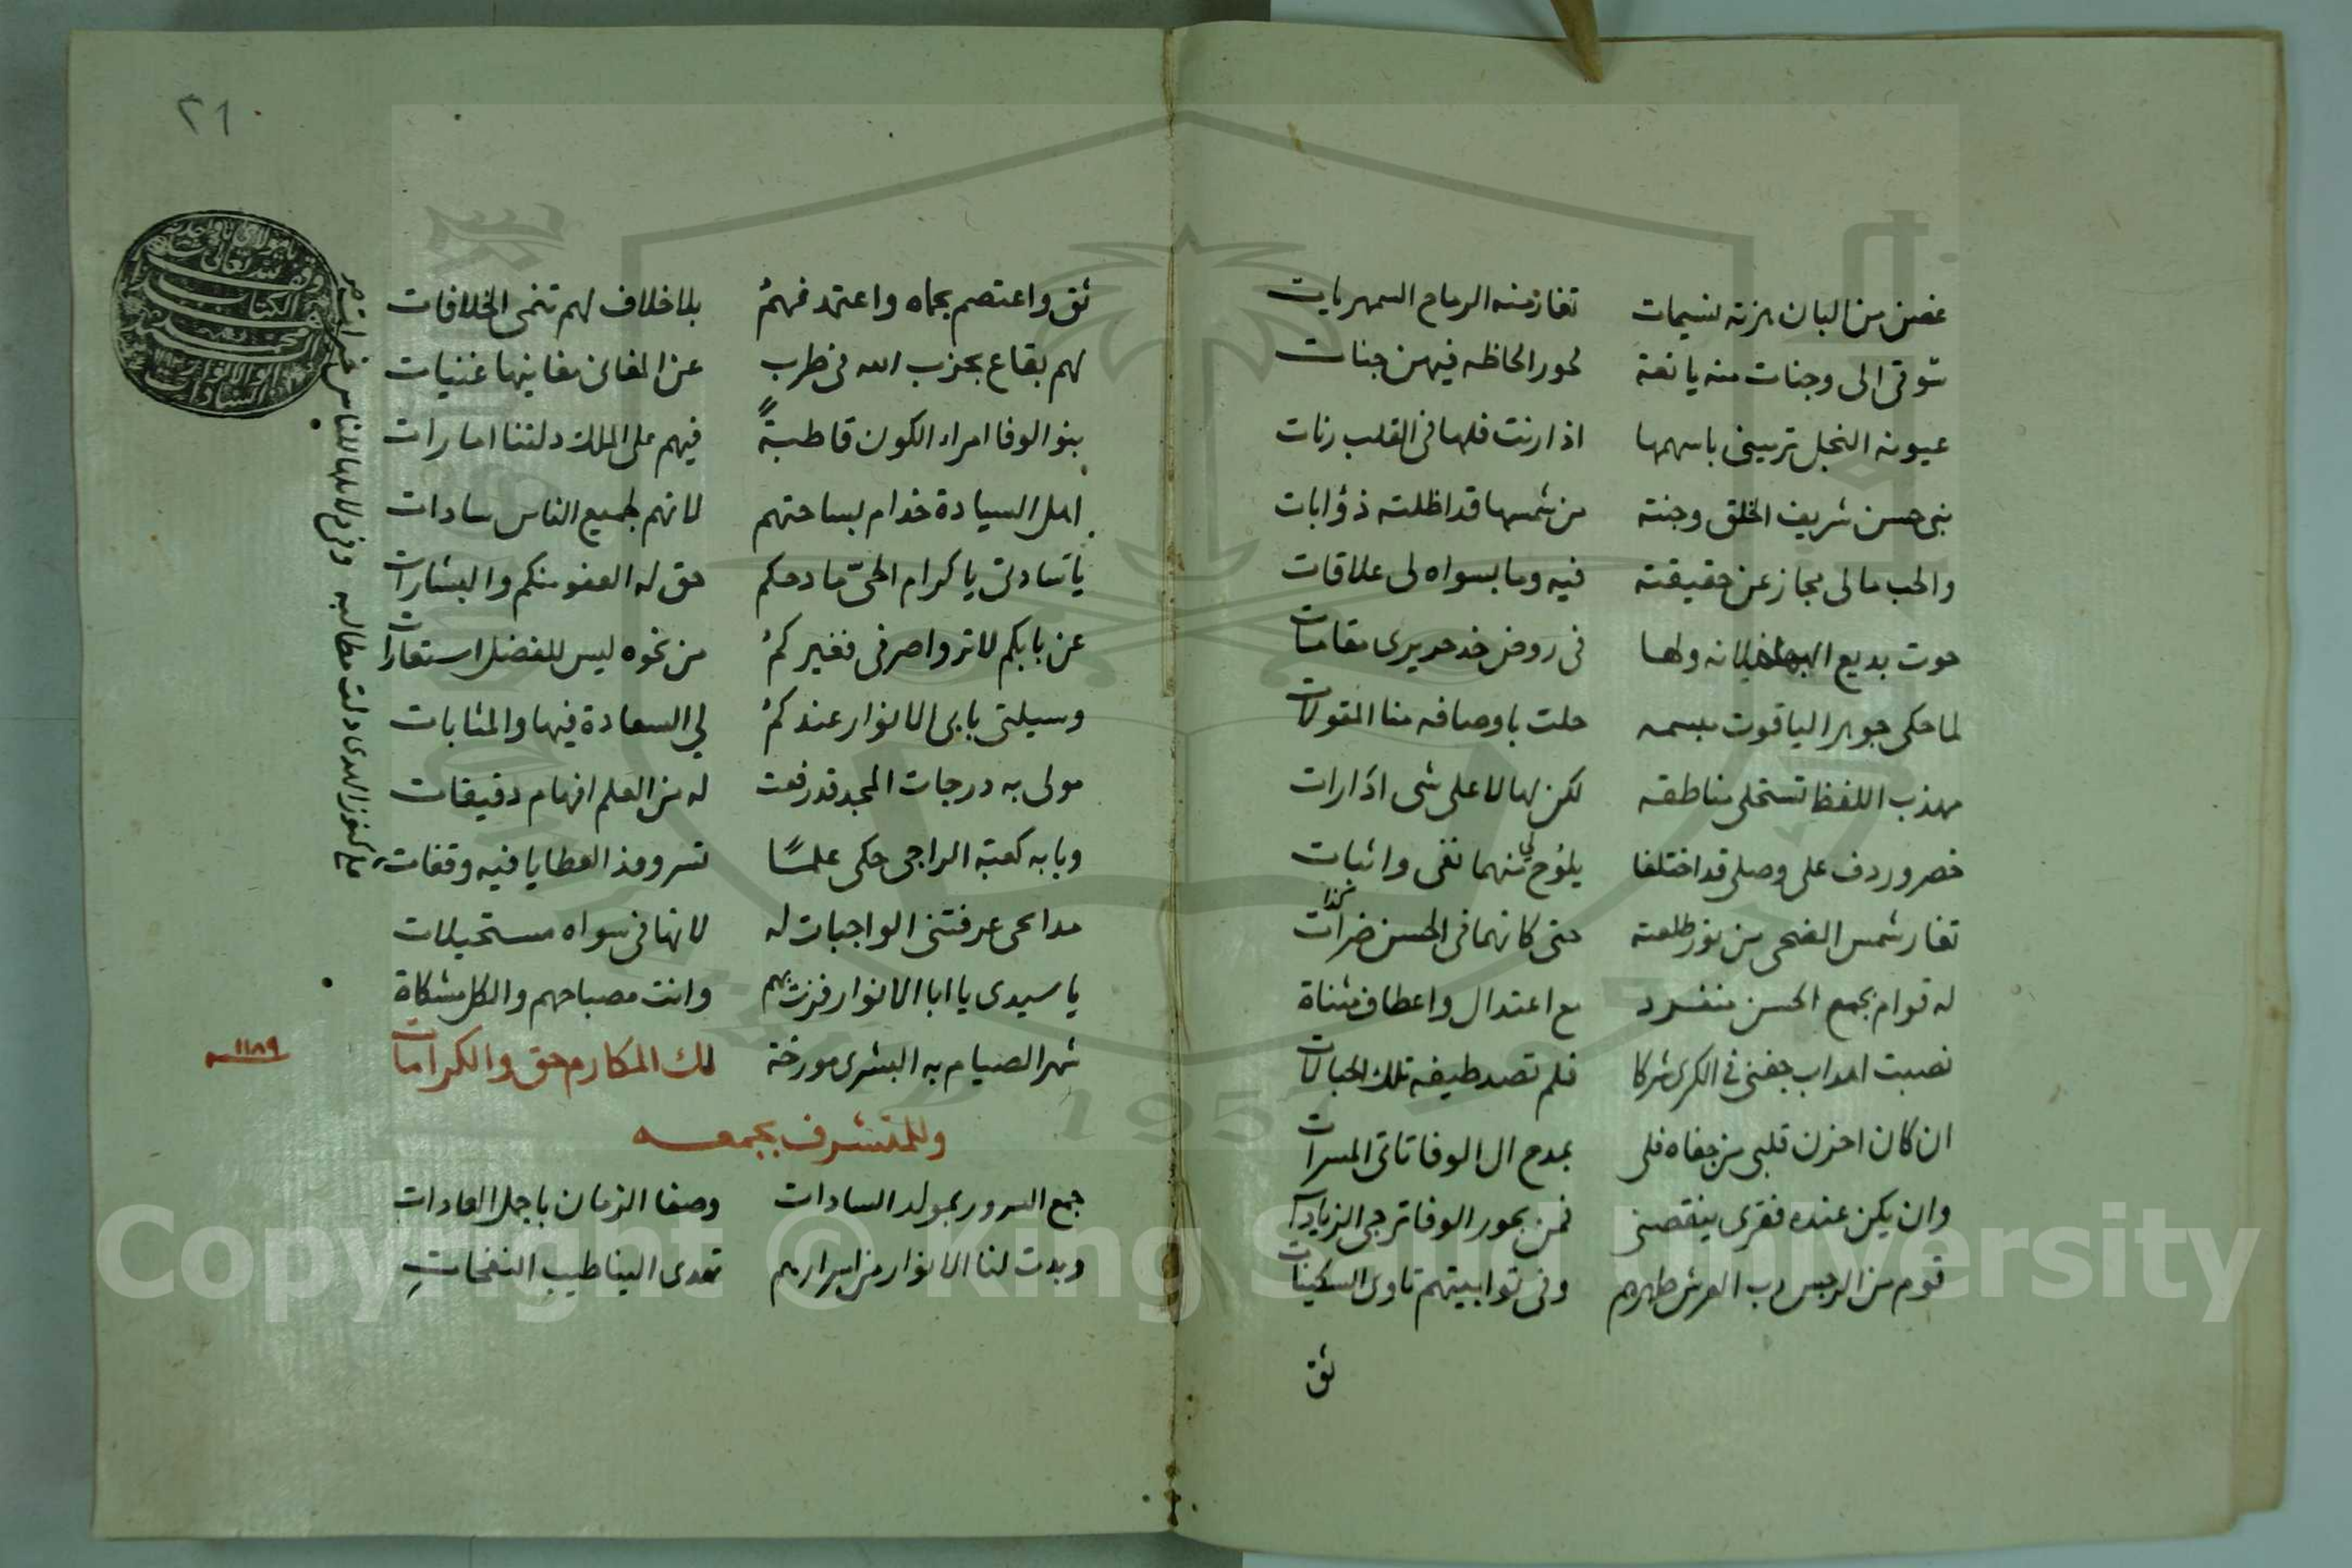 غصن من البان هزته نسيمات تغار منه الرماح السمهريات
شوقى الى وجنات منه يانعة لحور الحاظه فيهن جنات
عيونه النجل ترمينى باسهمها اذا رنت فلها فى القلب رنات
بنى حسن شريف الخلق وجنته من شمسها قد اظلته ذؤابات
والحب مالى مجاز عن حقيقته فيه وما بسواه لى علاقات
حوت بديع ولها فى روض خد حريرى مقامات
لما حكى جوهر الياقوت مبسمه حلت باوصافه منا المقولات
مهذب اللفظ تستحلى مناطقه لكن لها لا على شى ادارات
خصر وردف على وصلى قد اختلفا يلوح لى منهما نفى واثبات
تغار شمس الضحى من نور طلعته حتى كانهما فى الحسن ضرات
كذا
له قوام بجمع الحسن منفرد مع اعتدال واعطاف مثناة
نصبت اهداب جفنى فى الكرى شركا فلم تصد طيفه تلك الحبالات
ان كان احزن قلبى من جفاه فلى بمدح ال الوفا تاتى المسرات
وان يكن عنده فقرى ينقصنى فمن بحور الوفا ترجى الزيادات
قوم من الرجس رب العرش طهرهم وفى توابيتهم تاوى السكينات
ثق
٢١
ثق واعتصم بحماه واعتمد فهمُ بلا خلاف لهم تنمى الخلافات
لهم بقاع بحزب الله فى طرب عن المغانى مغانيها غنيات
بنو الوفا امراء الكون قاطبةً فيهم على الملك دلتنا امارات
اهل السيادة خدام بساحتهم لانهم لجميع الناس سادات
يا سادتى يا كرام الحىّ مادحكم حق له العفو منكم والبشارات
عن بابكم لا تروا صرفى فغيركمُ من نحوه ليس للفضل استعارات
وسيلتى بابى الانوار عندكمُ لي السعادة فيها والمثابات
مولى به درجات المجد قد رفعت له من العلم افهام دقيقات
وبابه كعبة الراجى حكى علمًا لسر وفد العطايا فيه وقفات
مدائحى عرفتنى الواجبات له لانها فى سواه مستحيلات
يا سيدى يا ابا الانوار فزت بهم وانت مصباحهم والكل مشكاة
شهر الصيام به البشرى مورخة لك المكارم حق والكرامات
١١٨٩
وللمتشرف بجمعه
جمع السرور بمولد السادات وصفا الزمان باجمل العادات
وبدت لنا الانوار من اسرارهم تهدى الينا طيب النفحاتِ
Copyright © King Saud University
1957